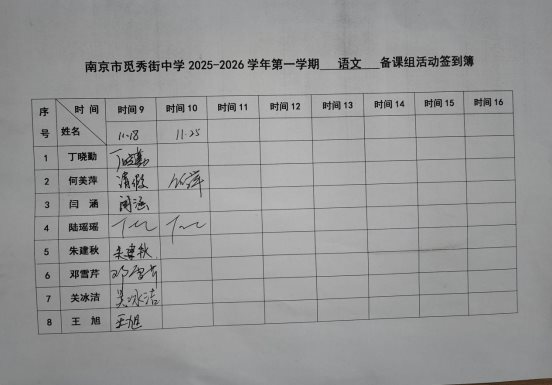 南京市觅秀街中学 2025-2026 学年第一学期 语文 备课组活动签到簿
序号 时间 姓名 时间 9 时间 10 时间 11 时间 12 时间 13 时间 14 时间 15 时间 16
11.18 11.25
1 丁晓勤 丁晓勤
2 何美萍 请假
3 闫涵 闫涵
4 陆瑶瑶
5 朱建秋 朱建秋
6 邓雪芹 邓雪芹
7 关冰洁 关冰洁
8 王旭 王旭